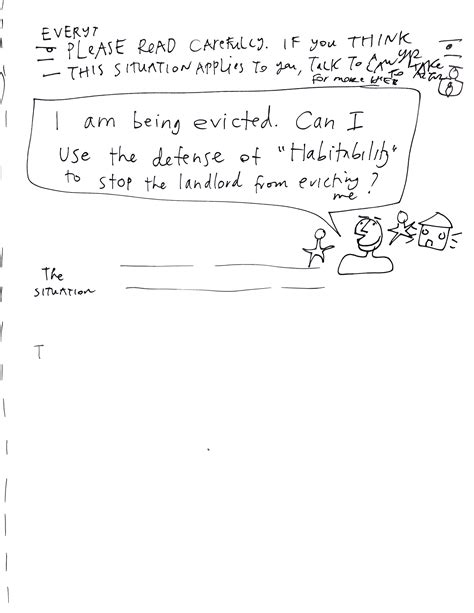 EVERYT
PLEASE READ CAREFULLY. IF you THINK
THIS SITUATION APPLIES To you, TALK TO LAWYR
for more
I am being evicted. Can I
use the defense of "Habitability"
to stop the landlord from evicting
me?
The
SITUATION
T